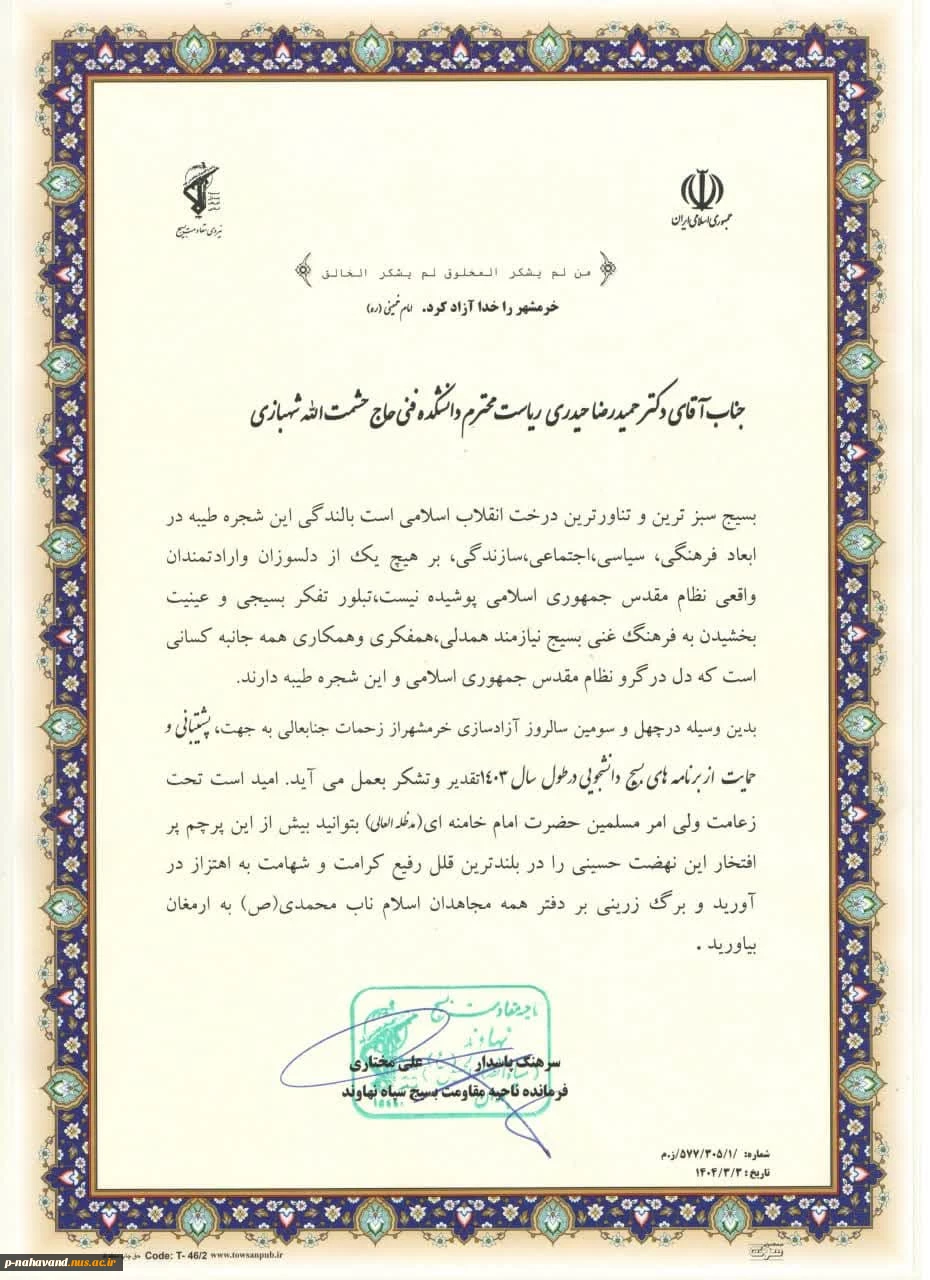 جمهوری اسلامی ایران
نیروی مقاومت بسیج
من لم یشکر المخلوق لم یشکر الخالق
خرمشهر را خدا آزاد کرد. امام خمینی (ره)
جناب آقای دکتر حمیدرضا حیدری ریاست محترم دانشکده فنی حاج حشمت الله شهبازی
بسیج سبز ترین و تناورترین درخت انقلاب اسلامی است بالندگی این شجره طیبه در
ابعاد فرهنگی، سیاسی،اجتماعی،سازندگی، بر هیچ یک از دلسوزان وارادتمندان
واقعی نظام مقدس جمهوری اسلامی پوشیده نیست،تبلور تفکر بسیجی و عینیت
بخشیدن به فرهنگ غنی بسیج نیازمند همدلی،همفکری وهمکاری همه جانبه کسانی
است که دل درگرو نظام مقدس جمهوری اسلامی و این شجره طیبه دارند.
بدین وسیله درچهل و سومین سالروز آزادسازی خرمشهراز زحمات جنابعالی به جهت، پشتیبانی و
حمایت از برنامه های بسیج دانشجویی درطول سال ۱۴۰۳تقدیر وتشکر بعمل می آید. امید است تحت
زعامت ولی امر مسلمین حضرت امام خامنه ای(مدظله العالی) بتوانید بیش از این پرچم پر
افتخار این نهضت حسینی را در بلندترین قلل رفیع کرامت و شهامت به اهتزاز در
آورید و برگ زرینی بر دفتر همه مجاهدان اسلام ناب محمدی(ص) به ارمغان
بیاورید .
ناحیه مقاومت بسیج
نهاوند
سرهنگ پاسدار علی مختاری
فرمانده ناحیه مقاومت بسیج سپاه نهاوند
شماره: /۵۷۷/۳۰۵/۱/ز.م
تاریخ: ۱۴۰۴/۳/۳
Code: T- 46/2 www.towsanpub.ir
p-nahavand.nus.ac.ir